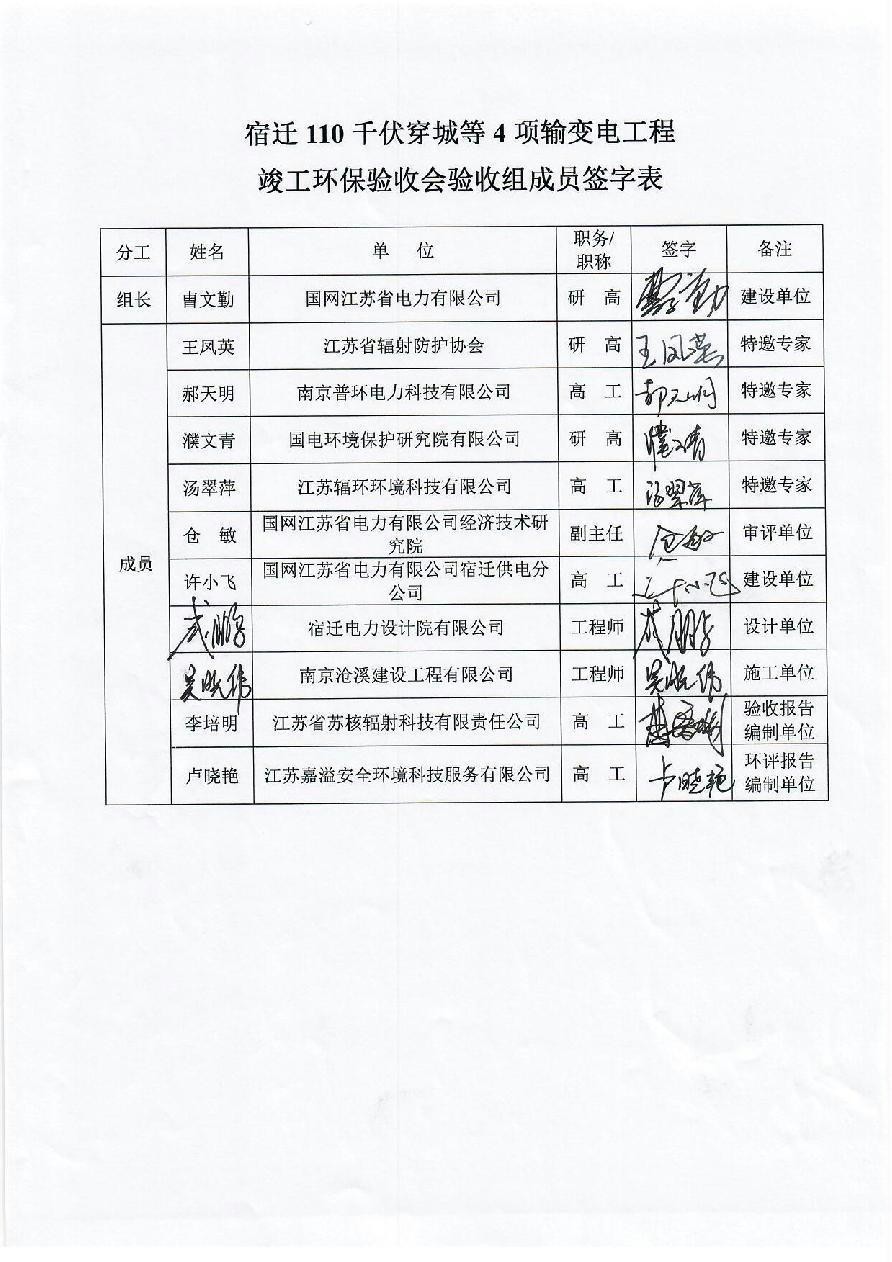 宿迁 110 千伏穿城等 4 项输变电工程
竣工环保验收会验收组成员签字表
分工 姓名 单 位 职务/职称 签字 备注
组长 曹文勤 国网江苏省电力有限公司 研 高 建设单位
成员
王凤英 江苏省辐射防护协会 研 高 王凤英 特邀专家
郝天明 南京普环电力科技有限公司 高 工 郝天明 特邀专家
濮文青 国电环境保护研究院有限公司 研 高 濮文青 特邀专家
汤翠萍 江苏辐环环境科技有限公司 高 工 汤翠萍 特邀专家
仓 敏 国网江苏省电力有限公司经济技术研究院 副主任 仓敏 审评单位
许小飞 国网江苏省电力有限公司宿迁供电分公司 高 工 许小飞 建设单位
成鹏 宿迁电力设计院有限公司 工程师 成鹏 设计单位
吴晓伟 南京沧溪建设工程有限公司 工程师 吴晓伟 施工单位
李培明 江苏省苏核辐射科技有限责任公司 高 工 验收报告编制单位
卢晓艳 江苏嘉溢安全环境科技服务有限公司 高 工 卢晓艳 环评报告编制单位